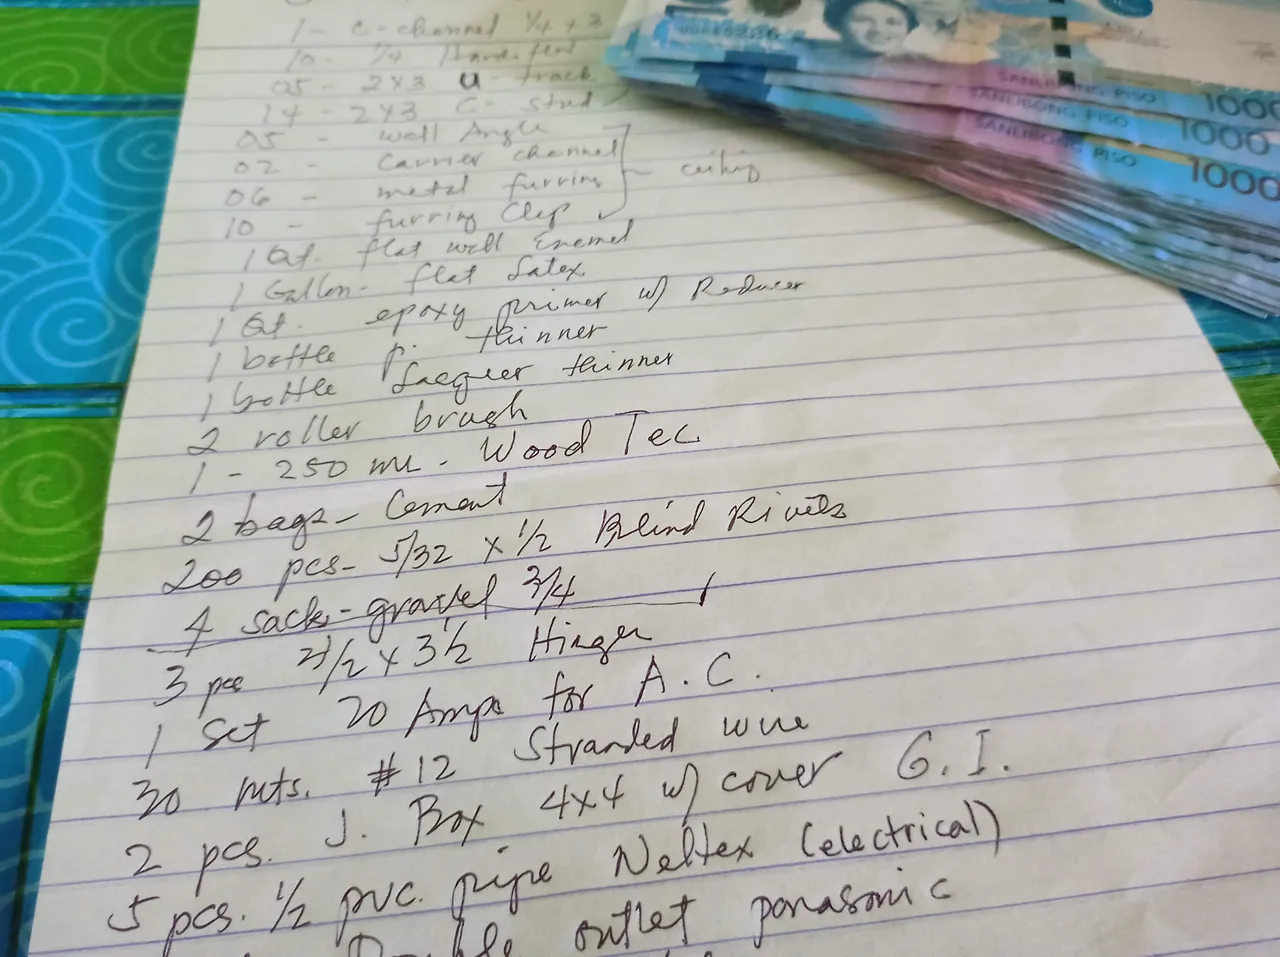 1 - C-channel 1/4 x 3
10 - 1/4 Hardiflex
05 - 2x3 U - track
14 - 2x3 C - stud
05 - wall Angle
02 - Carrier channel
06 - metal furring
10 - furring Clip
ceiling
1 Qt. flat wall Enamel
1 Gallon - flat Latex
1 Qt. epoxy primer w/ Reducer
1 bottle p. thinner
1 bottle Lacquer thinner
2 roller brush
1 - 250 ml - Wood Tec
2 bags - Cement
200 pcs - 5/32 x 1/2 Blind Rivets
4 sack - gravel 3/4
3 pcs 3 1/2 Hinges
1 Set 20 Amps for A.C.
30 mts. #12 Stranded wire
2 pcs. J. Box 4x4 w/ cover G.I.
5 pcs. 1/2 pvc. pipe Neltex (electrical)
Double outlet panasonic
SANLIBONG PISO 1000
SANLIBONG PISO 1000
SANLIBONG PISO 1000